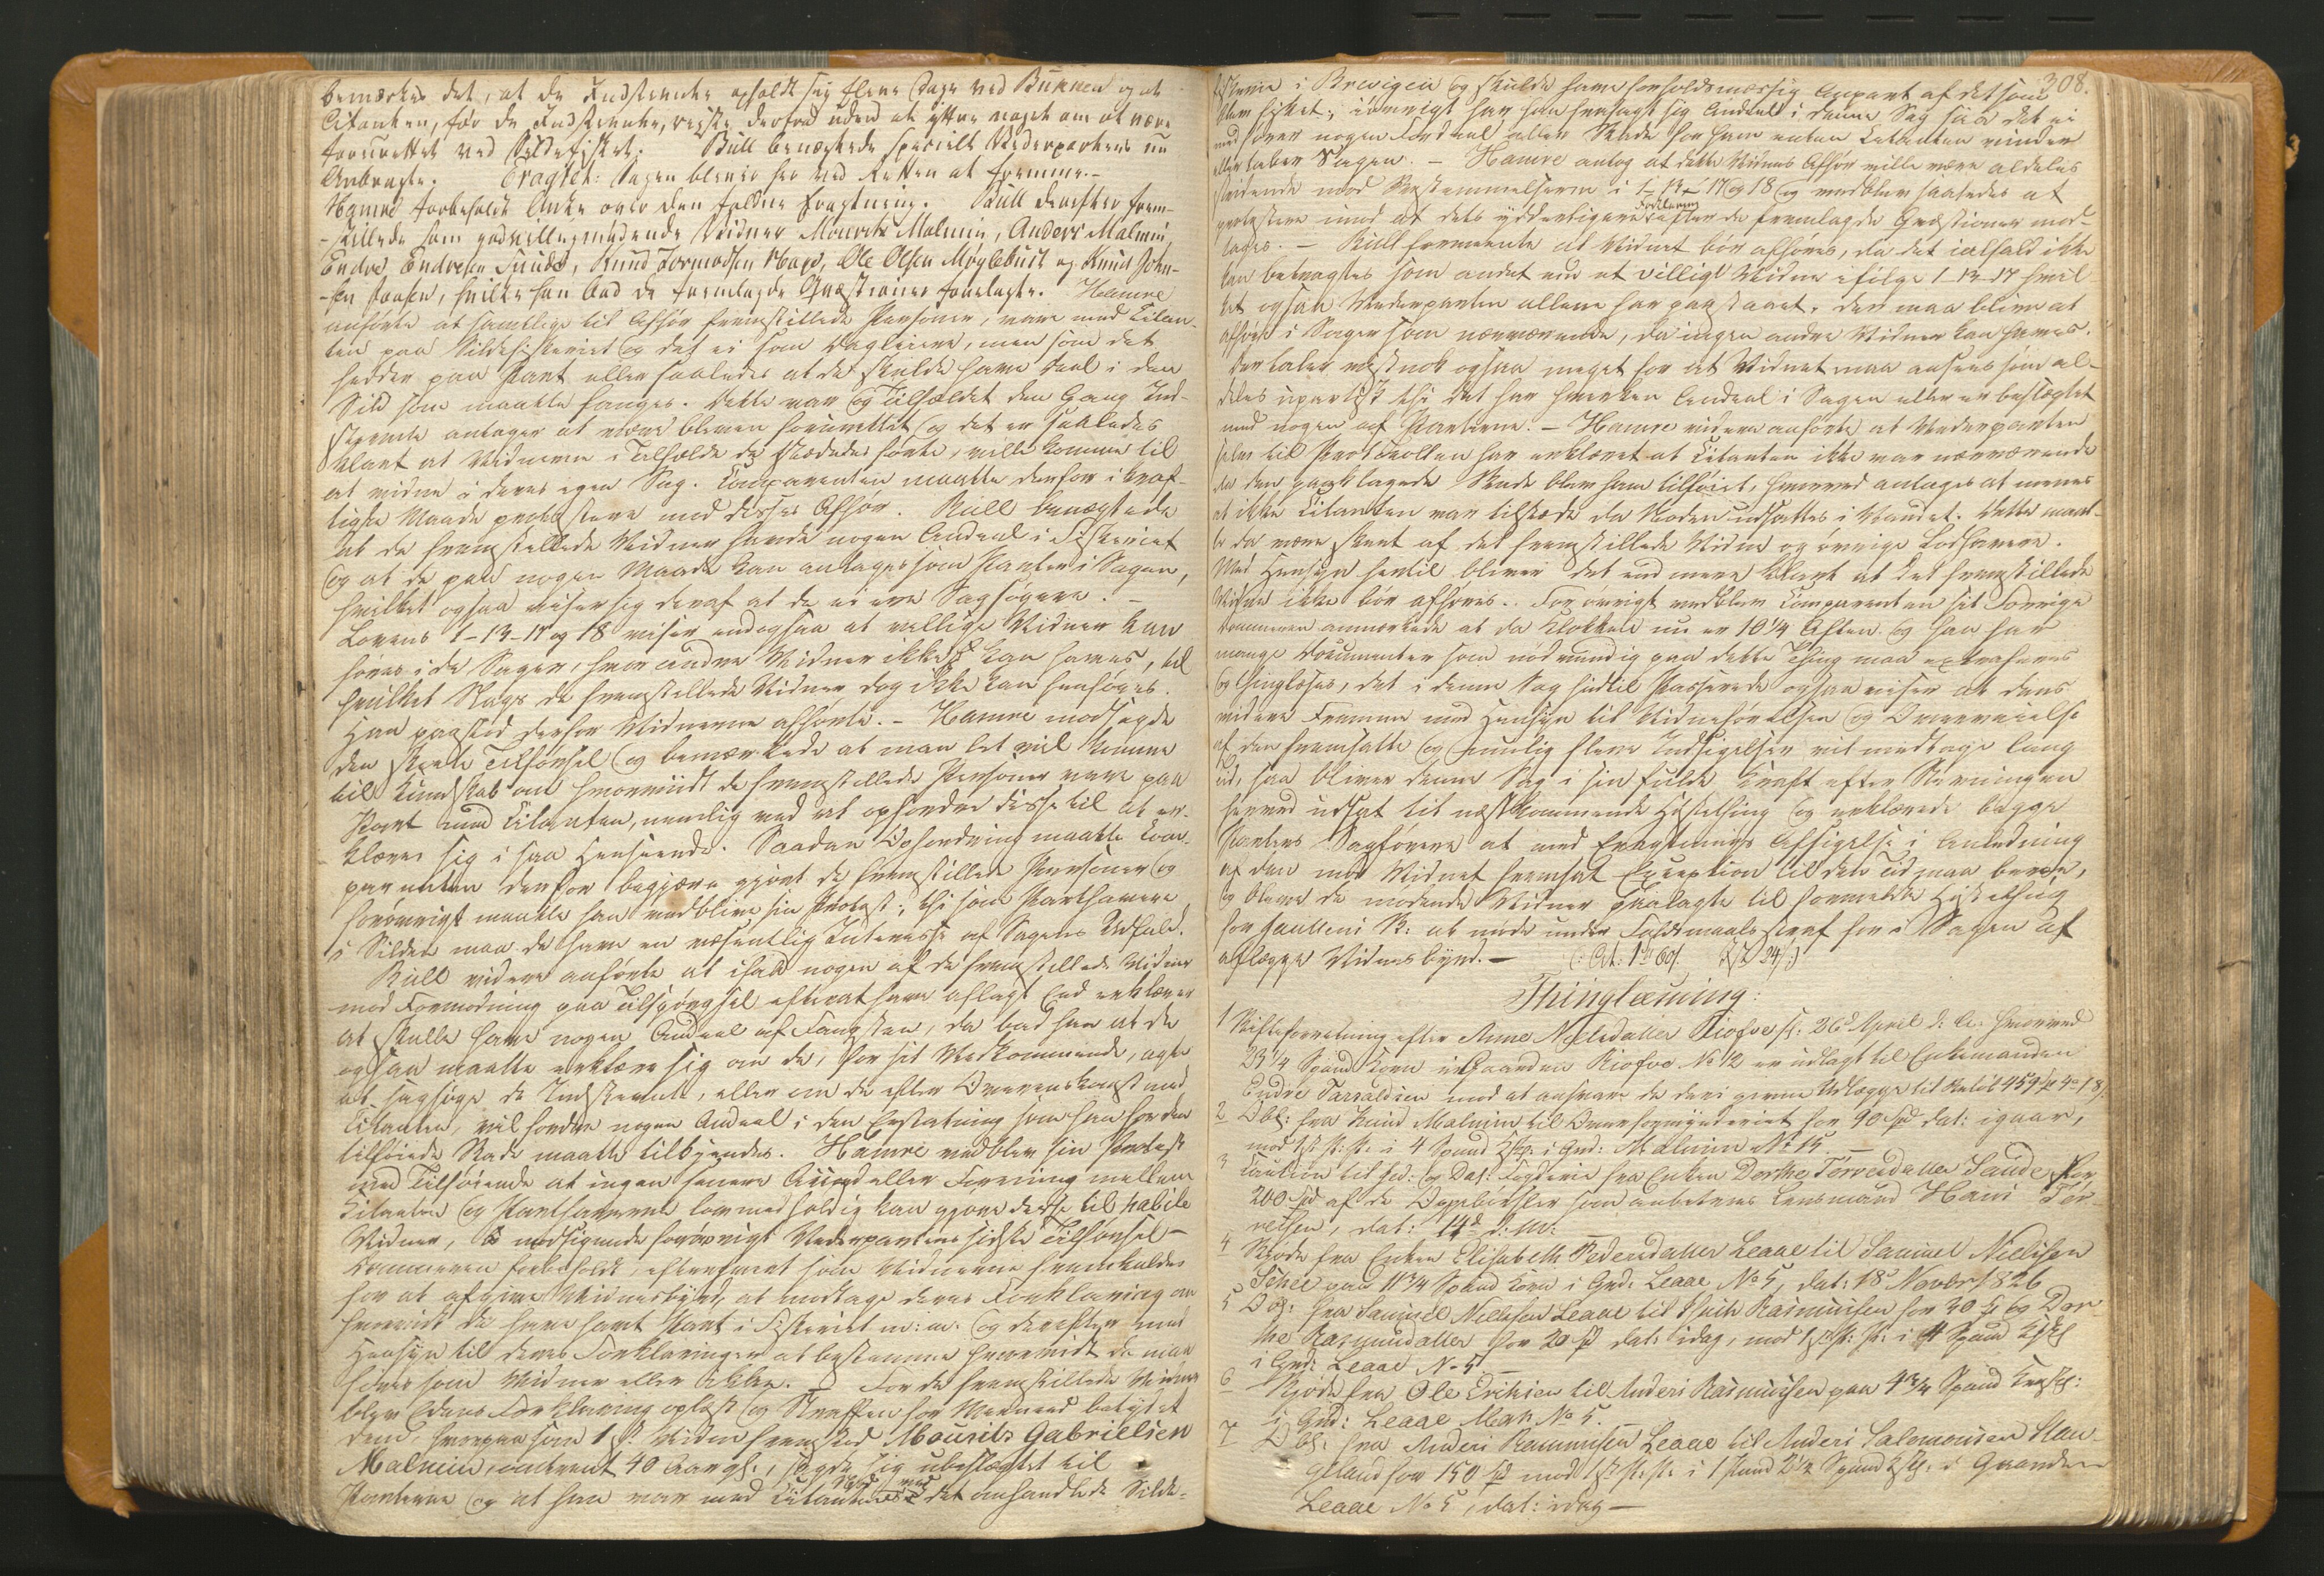 bemærkes det, at de Indstevnte opholdt sig flere Dage ved Bukken og at
Citanten, før de Indstevnte, reiste derfra uden at yttre noget om at være
forurettet ved Sildefisket. Bull benægtede specielt Vederpartens nu
Anbragte. Eragtet: Sagen bliver her ved Retten at fremme.-
Hamre forbeholdt Anke over den faldne Eragtning. Bull derefter frem-
-stillede som godvilligmødende Vidner Mourits Malmin, Anders Malmin
Endre Endresen Sunde, Knud Tormodsen Hage, Ole Olsen Møglebust og Knud John-
-sen, hvilke han bad de fremlagde Qvæstioner forelagte. Hamre
anførte at samtlige til Afhør fremstillede Personer, vare med Citan-
ten paa Sildefiskeriet og det ei som Dagleiere, men som det
hedder paa Part eller saaledes at de skulde have Deel i den
Sild som maatte fanges. Dette var og Tilfældet den Gang Ind-
stevnte antages at være bleven forurettet og det er saaledes
klart at Vidnerne i Tilfælde de stededes hørte, ville komme til
at vidne i deres egen Sag. Comparenten maatte derfor i kraf-
tigste Maade protestere mod disses Afhør. Bull benægtede
at de fremstillede Vidner havde nogen Andeel i Fiskeriet
og at de paa nogen Maade kan antages som Parter i Sagen,
hvilket ogsaa viser sig deraf at de ei ere Sagsøgere. -
Lovens 1-13-17 og 18 viser endogsaa at villige Vidner kan
høres i de Sager, hvor andre Vidner ikke kan haves, til
hvilket Slags de fremstillede Vidner dog ikke kan henføres.
Han paastod derfor Vidnerne afhørte. - Hamre modsagde
den skeete Tilførsel og bemærkede at man let vil komme
til Kundskab om hvorvidt de fremstillede Personer vare paa
Part med Citanten, nemlig ved at opfordre disse til at er-
klære sig i saa Henseende. Saadan Opfordring maatte Com-
parenten derfor begjære gjort de fremstillede Personer og
forøvrigt maatte han vedblive sin Protest; thi som Parthavere
i Silden maa de have en væsentlig Interesse af Sagens Udfald.
Bull videre anførte at ifald nogen af de fremstillede Vidner
mod Formodning paa Tilspørgsel efterat have aflagt Eed erklærer
at skulle have nogen Andeel af Fangsten, da bad han at de
ogsaa maatte erklære sig om de, for sit Vedkommende, agte
at sagsøge de Indstevnte, eller om de efter Overenskomst med
Citanten, vil fordre nogen Andeel i den Erstatning som han for den
tilføiede Skade maatte tilkjendes. Hamre vedblev sin Protest
med Tilføiende at ingen senere Accord eller Forening mellem
Citanten og Parthaverne lovmedholdig kan gjøre disse til habile
Vidner, modsigende forøvrigt Vederpartens sidste Tilførsel -
Dommeren forbeholdt, efterhvert som Vidnerne fremkaldes
for at afgive Vidnesbyrd, at modtage deres Forklaring om
hvorvidt de have havt Part i Fiskeriet m: m. og derefter med
Hensyn til deres Forklaringer at bestemme hvorvidt de maa
høres som Vidner eller ikke. - For de fremstillede Vidner
blev Edens Forklaring oplæst og Straffen for Meened betydet
dem, hvorpaa som 1ste Vidne fremstod Mourits Gabrielsen
Malmin, omtrent 40 Aar gl:, sagde sig ubeslægtet til
Parterne og at han var med Citanten ved det omhandlede Silde-
308.
fiskerie i Brevigen og skulde have forholdsmæssig Anpart af det som
blev fisket; iøvrigt har han frasagt sig Andeel i denne Sag saa det ei
medfører nogen Fordeel eller Skade for ham enten Citanten vinder
eller taber Sagen. - Hamre antog at dette Vidnes Afhør ville være aldeles
stridende mod Bestemmelserne i 1-13-17 og 18 og vedblev saaledes at
protestere imod at dets ydderligere Forklaring efter de fremlagde Qvæstioner mod-
tages. - Bull formeente at Vidnet bør afhøres, da det ialfald ikke
kan betragtes som andet end et villigt Vidne ifølge 1-13-17 hvil-
ket ogsaa Vederparten allene har paastaaet, der maa blive at
afhøre i Sager som nærværende, da ingen andre Vidner kan haves.
Der taler vistnok ogsaa meget for at Vidnet maa ansees som al-
deles upartisk thi det har hverken Andeel i Sagen eller er beslægtet
med nogen af Parterne. - Hamre videre anførte at Vederparten
selv til Protocollen har erklæret at Citanten ikke var nærværende
da den paaklagede Skade blev ham tilføiet, hvorved antages at menes
at ikke Citanten var tilstede da Noden udsattes i Vandet. Dette maat-
te da være skeet af det fremstillede Vidne og øvrige Lodhavere.
Med Hensyn hertil bliver det end mere klart at det fremstillede
Vidne ikke bør afhøres. Forøvrigt vedblev Comparenten sit Forrige
Dommeren anmærkede at da Klokken nu er 10 1/4 Aften og han har
mange Documenter som nødvendig paa dette Thing maa extraheres
og thinglæses, det i denne Sag hidtil Passerede ogsaa viser at dens
videre Fremme med Hensyn til Vidneførelsen og Overveielse
af den fremsatte og muelig flere Indsigelser vil medtage lang
Tid, saa bliver denne Sag i sin fulde Kraft efter Stevningen
herved udsat til næstkommende Høstething og erklærede begge
Parters Sagførere at med Eragtnings Afsigelse i Anledning
af den mod Vidnet fremsat Exception til den Tid maa beroe,
og bleve de mødende Vidner paalagte til formeldte Høstething
for Jautlens Sk: at møde under Faldsmaalsstraf for i Sagen at
aflægge Vidnesbyrd. -
Thinglæsning:
1 Skifteforretning efter Anne Nielsdatter Riofoe sl: 26d April d. A. hvorved
23 1/4 Spand Korn i Gaarden Riofoe No 12 er udlagt til Enkemanden
Endre Tarraldsen mod at ansvare de deri givne Udlægge til Beløb 459 Spd 4 18 s.
2 Obl: fra Knud Malmin til Overformynderiet for 90 Spd dat: igaar,
mod 1st Pr: Pr: i 4 Spand Kstg: i Grd: Malmin No 15. -
3 Caution til Jed: og Dal: Fogderie fra Enken Dorthe Torversdatter Saude for
200 Spd af de Oppebørsler som anbetroes Lensmand Hans Tor-
velsen, dat: 14d d: M: -
4 Skjøde fra Enken Elisabeth Pedersdatter Leaae til Samuel Nielsen
Schie paa 11 3/4 Spand Korn i Grd: Leaae No 5, dat: 18d Novbr 1826
5 Obl: fra Samuel Nielsen Leaae til Thies Rasmussen for 30 Sp og Dor-
the Rasmusdatter for 20 Spd dat: idag, mod 1st Pr: Pr: i 4 Spand Kstg
i Grd: Leaae No 5. -
6 Skjøde fra Ole Eriksen til Anders Rasmussen paa 4 3/4 Spand Krnstg:
i Grd: Leaae Mat: No 5.
7 Obl: fra Anders Rasmussen Leaae til Anders Salomonsen Stan-
geland for 150 Spd mod 1st Pr: Pr: i 1 Pund 2 1/4 Spand Kstg: i Gaarden
Leaae No 5, dat: idag -